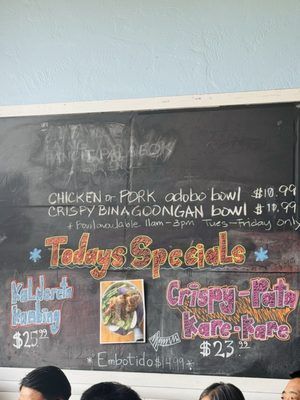 CHICKEN or PORK adobo bowl $10.99
CRISPY BINAGOONGAN bowl $10.99
* Bowl available 11am-3pm Tues-Friday only
Todays Specials
Kaldereta
Kambing
$25.99
Crispy-Pata
Kare-Kare
$23.99
*Embotido $14.99*